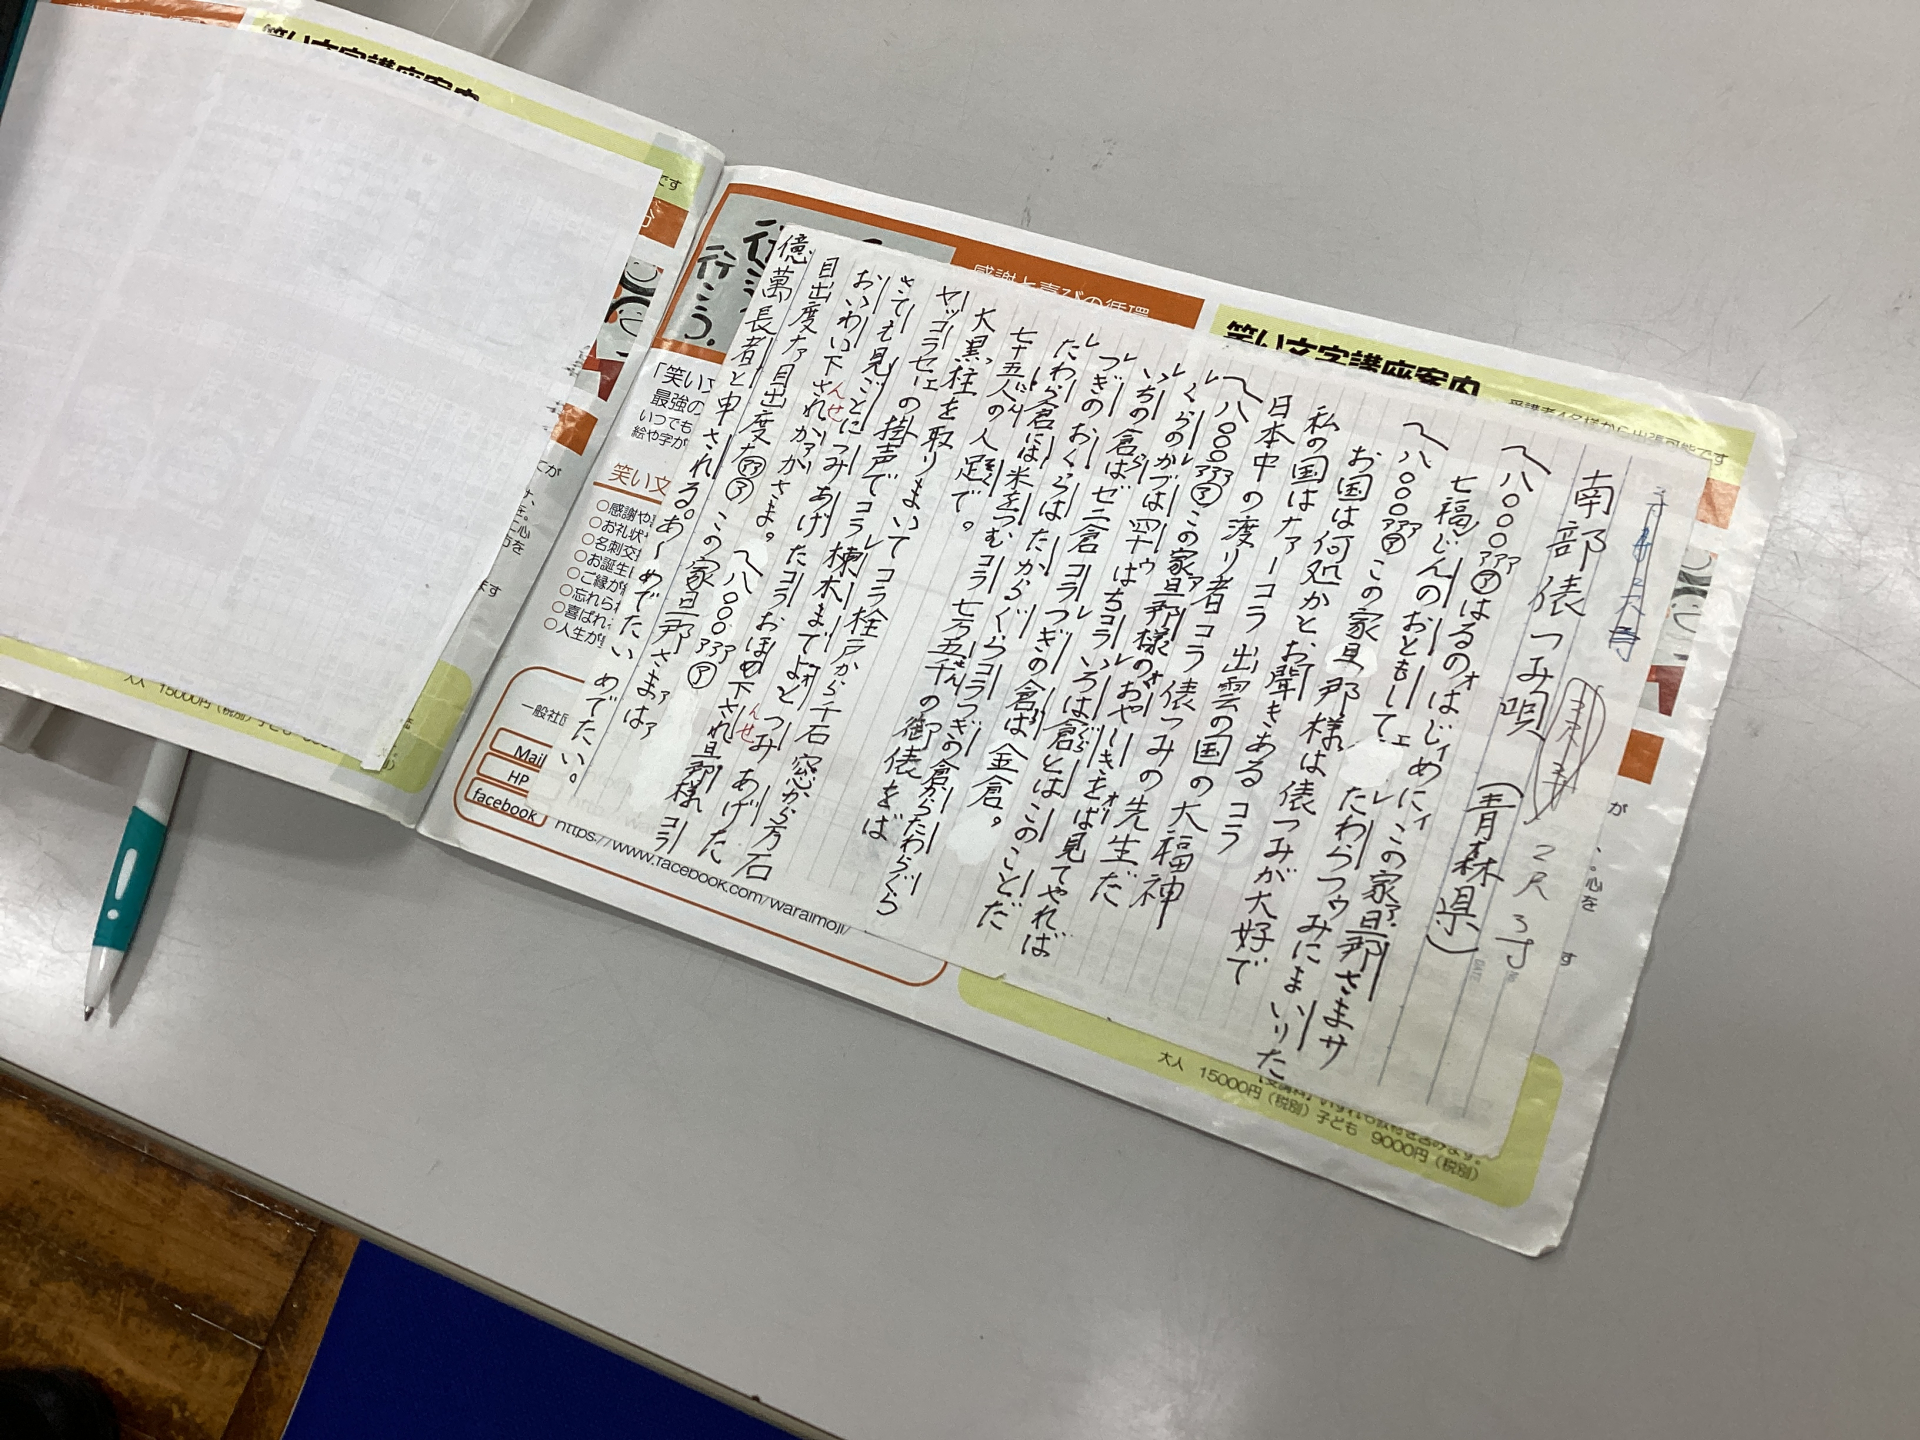 南部俵つみ唄 (青森県)
2尺3寸
ハ〇〇〇アアアはるのオはじィめにィこの家アー旦那さまサ
七福じんのおともしてェ たわらつゥみにまいりた
ハ〇〇〇アアアこの家旦那様は俵つみが大好で
お国は何処かと、お聞きあるコラ
私の国はナァーコラ出雲の国の大福神
日本中の渡り者コラ俵つみの先生だ
ハ〇〇〇アアアこの家ア旦那様のオおやしきをォば見てやれば
くらのかづは四十ゥはちコラいろは倉とはこのことだ
いちの倉はゼニ倉コラつぎの倉は金倉。
つぎのおくらはたからぐらコラつぎの倉からたわらぐら
たわら倉には米をつむコラ七万五千の御俵をば
七十五人の人足で。
大黒柱を取りまいてコラ栓戸から千石窓から万石
ヤッコラセェの掛声でコラ棟木までよォとつみあげた
さても見ごとにつみあげたコラおほめ下され旦那様コラ
おいわい下されかァかさま。ハ〇〇〇アアアこの家旦那さまァはァ
目出度ナァ目出度なアアアこの
億萬長者と申される。あ〜めでたいめでたい。
んせ
んせ
笑い文字講座案内
笑い文字講座案内
感謝と喜びの循環
受講者4名様から出張可能です
「笑い文
最強の
いつでも
絵や字が
笑い文
○感謝や
○お礼状
○名刺交
○お誕生
○ご縁が
○忘れられ
○喜ばれ
○人生が
一般社団
Mail
HP
facebook
https://www.facebook.com/waraimoji/
大人 15000円(税別)子ども 9000円(税別)
大人 15000円(税別)子